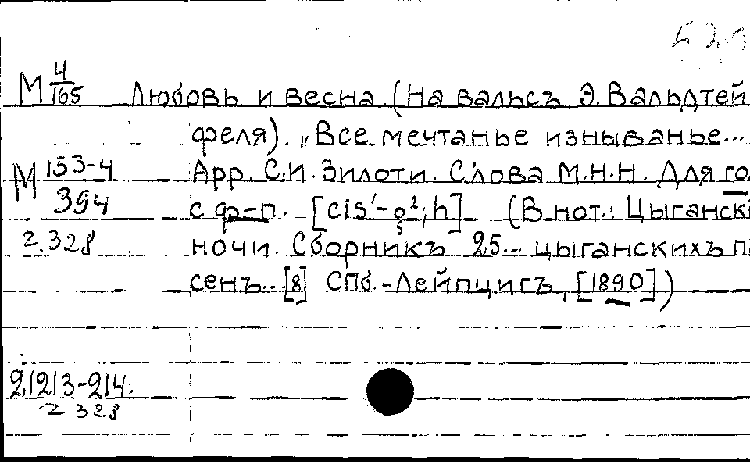 М 4/165 Любовь и весна. (На вальсъ Э. Вальдтей
феля). „Все мечтанье изныванье...
М 153-4/394 Арр. С.И. Зилоти. Слова М.Н.Н. Для го
с ф-п. [cis'-g²; h] (В нот.: Цыгански
г.328 ночи. Сборникъ 25... цыганскихъ п
сенъ.. [8] СПб.-Лейпцигъ, [1890])
2|2|3-2|4.
г 328